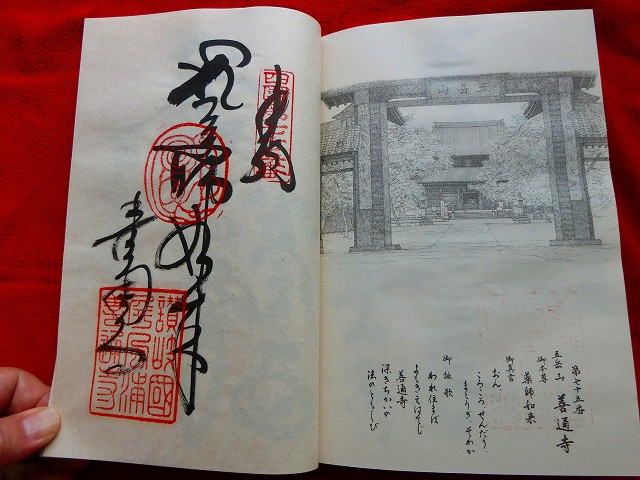 五岳山
第七十五番
五岳山 善通寺
御本尊 薬師如来
御真言
おん
ころころ せんだり
まとうぎ そわか
御詠歌
われ住まば
よもきえはてじ
善通寺
深きちかいの
法のともしび
奉納
如来
善通寺
讃岐國
善通寺